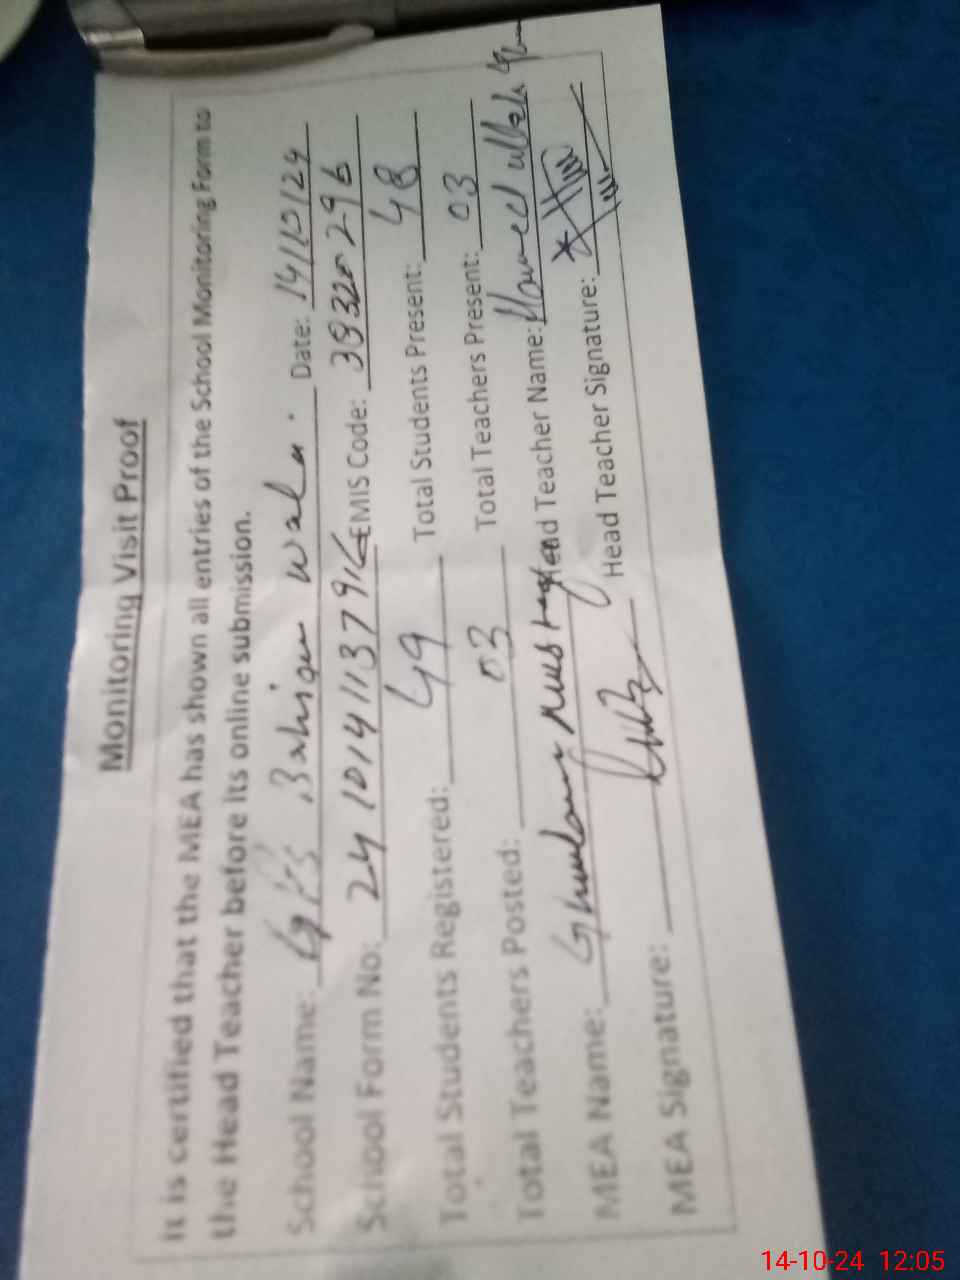 Monitoring Visit Proof
It is certified that the MEA has shown all entries of the School Monitoring Form to
the Head Teacher before its online submission.
School Name: GPS Date: 14/10/24
School Form No: EMIS Code:
Total Students Registered: 49 Total Students Present: 48
Total Teachers Posted: 03 Total Teachers Present: 03
MEA Name: Head Teacher Name:
MEA Signature: Head Teacher Signature:
14-10-24 12:05